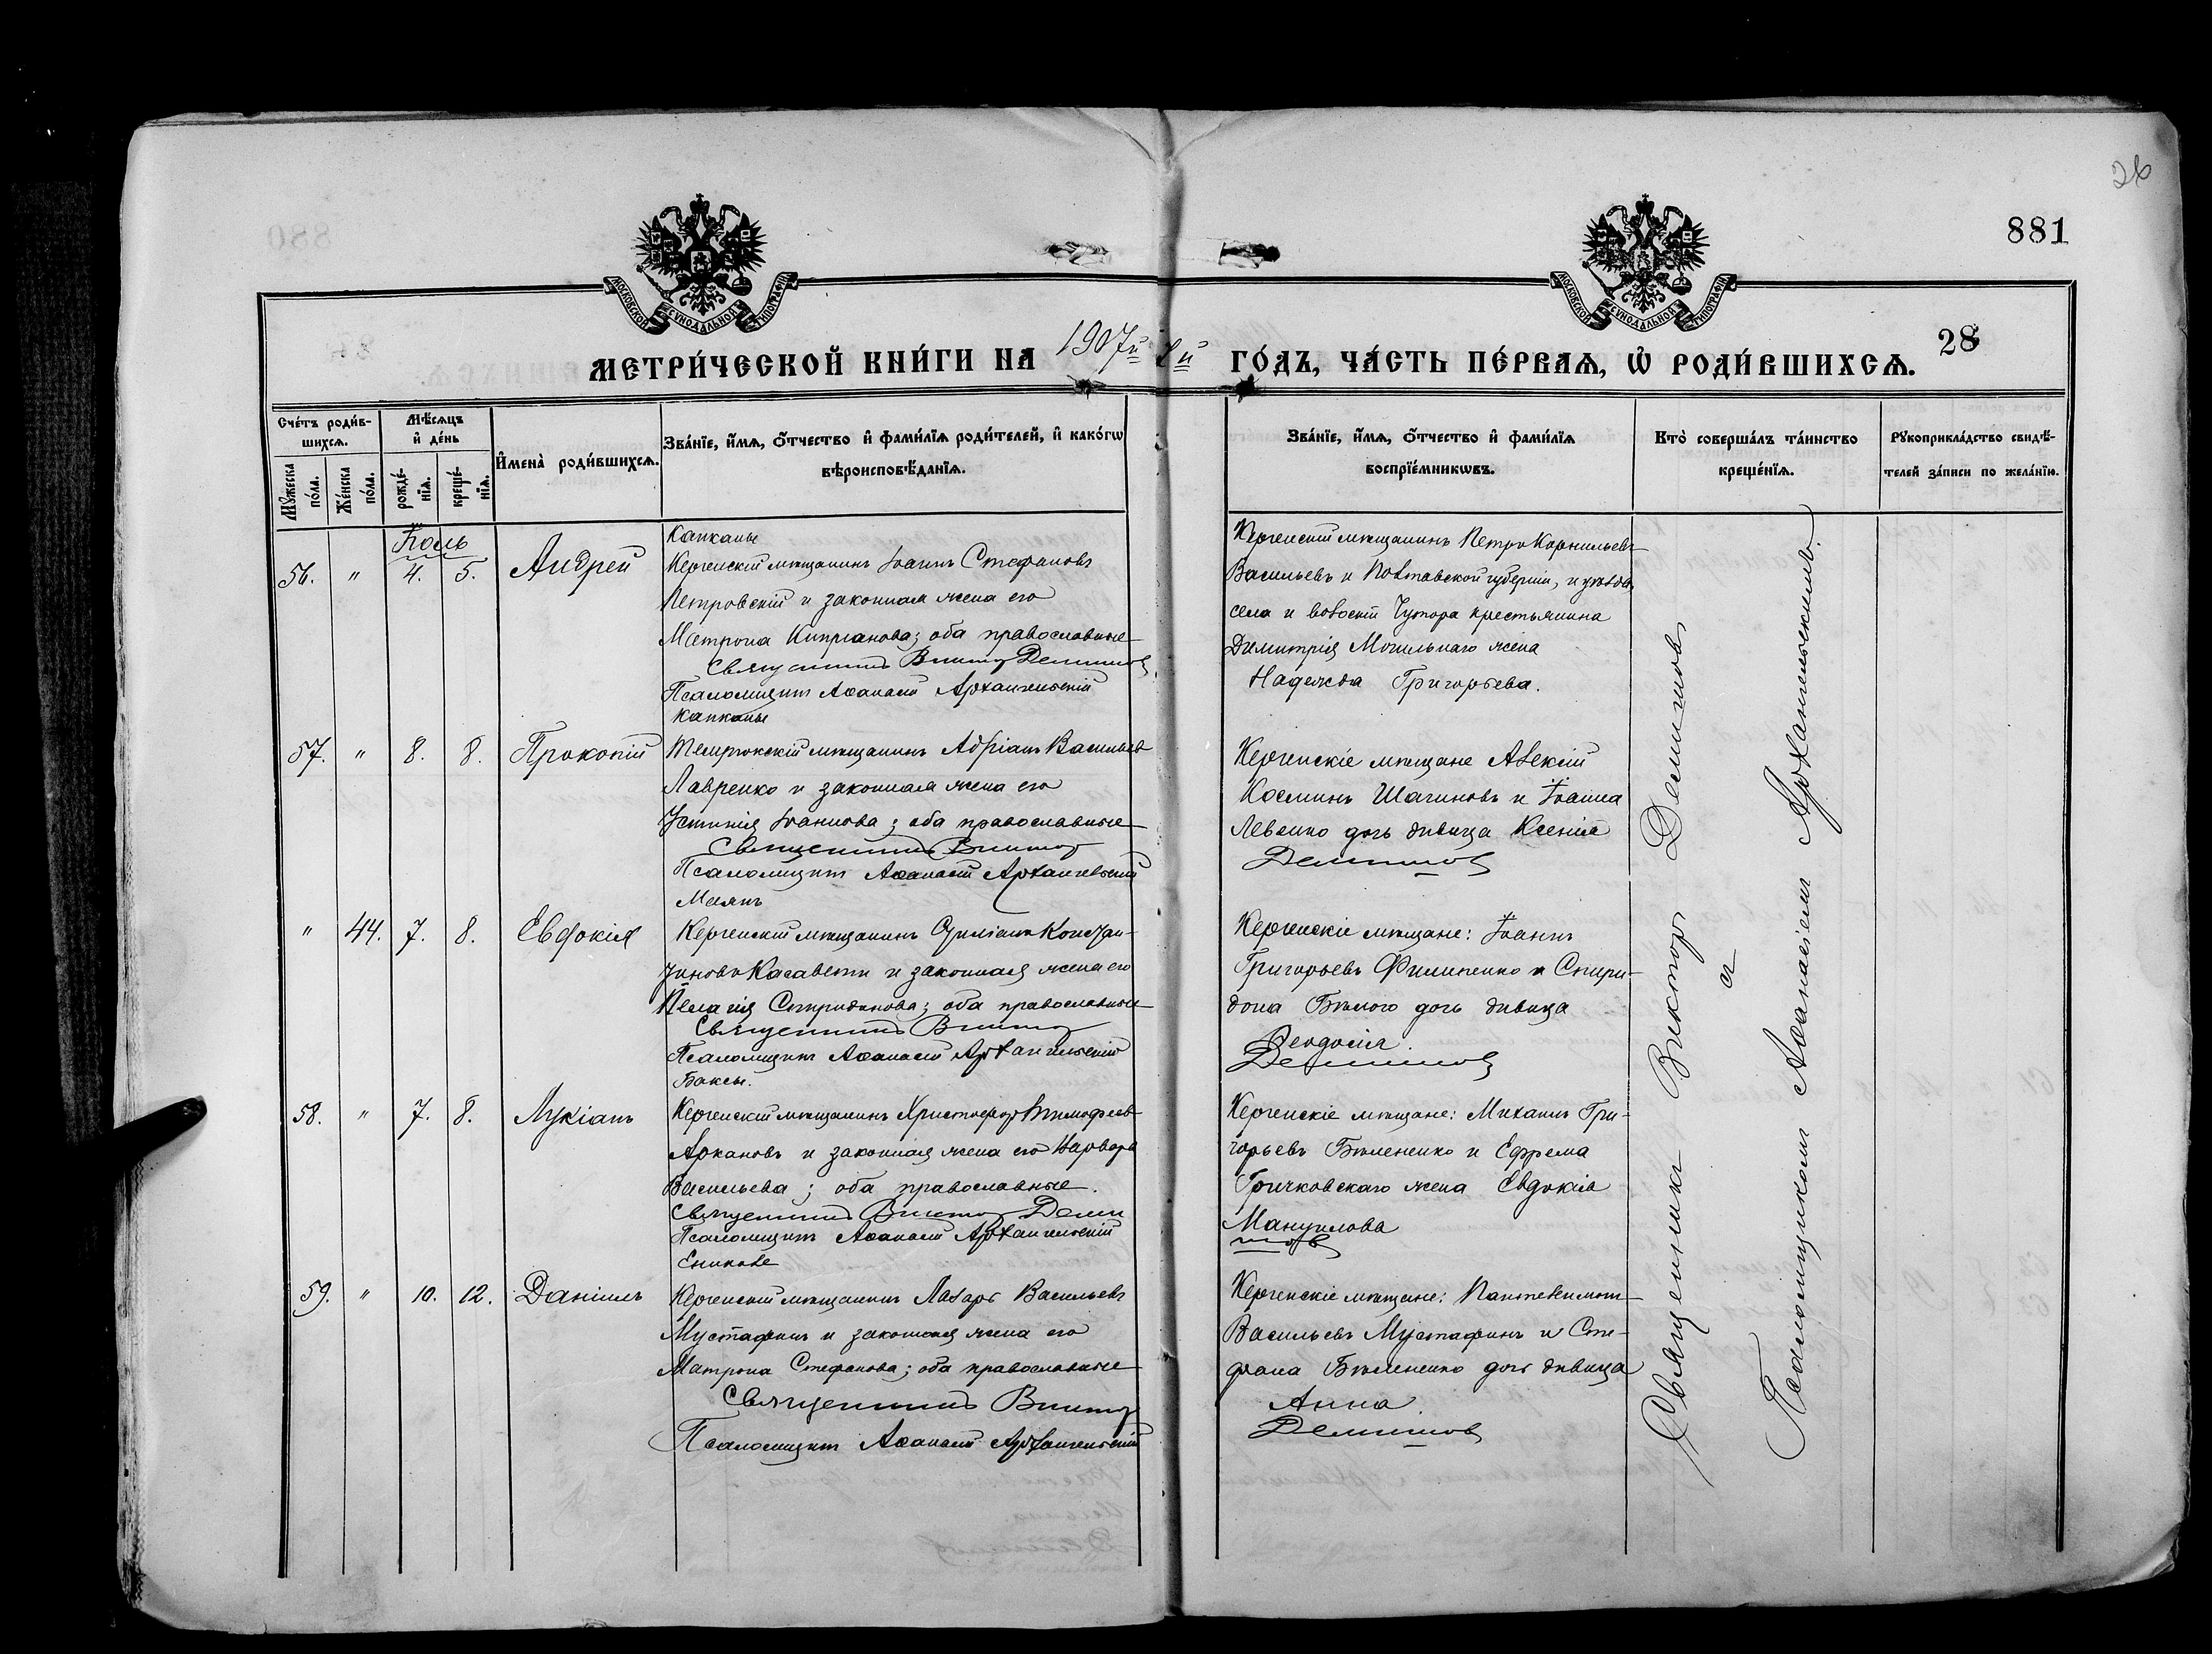 26
881
МОСКОВСКОЙ СѴНОДАЛЬНОЙ ТИПОГРАФІИ
МОСКОВСКОЙ СѴНОДАЛЬНОЙ ТИПОГРАФІИ
28
МЕТРИ́ЧЕСКОЙ КНИ́ГИ НА 1907й й ГО́ДЪ, ЧА́СТЬ ПЕ́РВАѦ, Ѡ҆ РОДИ́ВШИХСѦ.
Сче́тъ роди́в-
шихсѧ.
Мѣ́сѧцъ
и҆ де́нь
Мꙋ́жеска
по́ла.
Же́нска
по́ла.
рожде́-
нїѧ.
креще́-
нїѧ.
И҆мена̀ роди́вшихсѧ.
Зва́нїе, и҆́мѧ, ѻ҆́тчество и҆ фами́лїѧ роди́телей, и҆ како́гѡ
вѣроисповѣ́данїѧ.
Зва́нїе, и҆́мѧ, ѻ҆́тчество и҆ фами́лїѧ
воспрїе́мникѡвъ.
Кто̀ соверша́лъ та́инство
креще́нїѧ.
Рꙋкоприкла́дство свидѣ́-
телей за́писи по жела́нїю.
Іюль
56. " 4. 5. Андрей
Капканы
Керченскій мѣщанинъ Іоаннъ Стефановъ
Петровскій и законная жена его
Матрона Кипріанова; оба православные
Священникъ Викторъ Демишовъ
Псаломщикъ Аѳанасій Архангельскій
Керченскій мѣщанинъ Петръ Корнильевъ
Васильевъ и Полтавской губерніи, и уѣзда,
села и волости Чутора крестьянина
Димитрія Могильнаго жена
Надежда Григорьева.
57. " 8. 8. Прокопій
Капканы
Темрюкскій мѣщанинъ Адріанъ Васильевъ
Лавренко и законная жена его
Устинія Іоаннова; оба православные
Священникъ Викторъ
Псаломщикъ Аѳанасій Архангельскій
Керченскіе мѣщане Алексій
Косминъ Шагиновъ и Іоанна
Левенко дочь дѣвица Ксенія
Демишовъ
" 44. 7. 8. Евдокія
Маякъ
Керченскій мѣщанинъ Констан-
тиновъ и законная жена его
Пелагія Спиридонова; оба православные
Священникъ Викторъ
Псаломщикъ Аѳанасій Архангельскій
Керченскіе мѣщане: Іоаннъ
Григорьевъ Филипенко и Спири-
дона Бѣлого дочь дѣвица
Ѳеодосія.
Демишовъ
58. " 7. 8. Лукіанъ
Баксы.
Керченскій мѣщанинъ Христофоръ Тимофеевъ
Аркановъ и законная жена его Варвара
Васильева; оба православные.
Священникъ Викторъ Деми
Псаломщикъ Аѳанасій Архангельскій
Керченскіе мѣщане: Михаилъ Гри-
горьевъ Бѣлененко и Ефрема
Гричковскаго жена Евдокія
Мануилова
шовъ
59. " 10. 12. Даніилъ
Еникале
Керченскій мѣщанинъ Лазарь Васильевъ
Мустафинъ и законная жена его
Матрона Стефанова; оба православные
Священникъ Викторъ
Псаломщикъ Аѳанасій Архангельскій
Керченскіе мѣщане: Пантелеимонъ
Васильевъ Мустафинъ и Сте-
фана Бѣлененко дочь дѣвица
Анна.
Демишовъ
Священникъ Викторъ Демишовъ
съ
Псаломщикомъ Аѳанасіемъ Архангельскимъ.